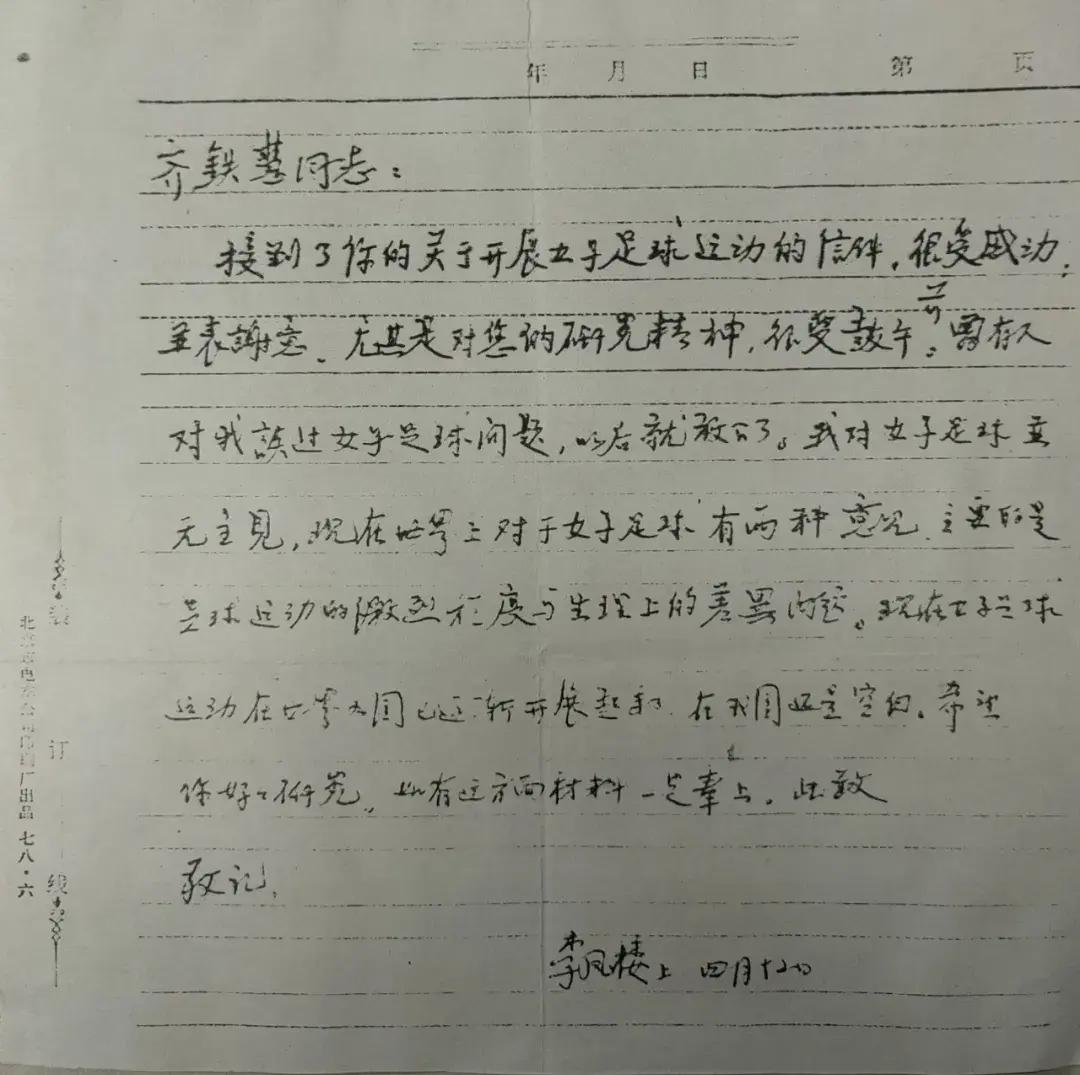 年 月 日 第 页
齐铁慧同志：
接到了你的关于开展女子足球运动的信件，很受感动，
并表謝意。尤其是对您的研究精神，很受鼓午。曾有人
对我談过女子足球问题，以后就散了。我对女子足球並
无主見，现在世界上对于女子足球有两种意见，主要的是
足球运动的激烈程度与生理上的差異问题。现在女子足球
运动在世界各国已逐渐开展起来，在我国还是空白。希望
你好好研究，如有这方面材料一定奉上。此致
敬礼，
李凤楼上 四月十二日
装
订
线
北京市电车公司印刷厂出品 七八·六